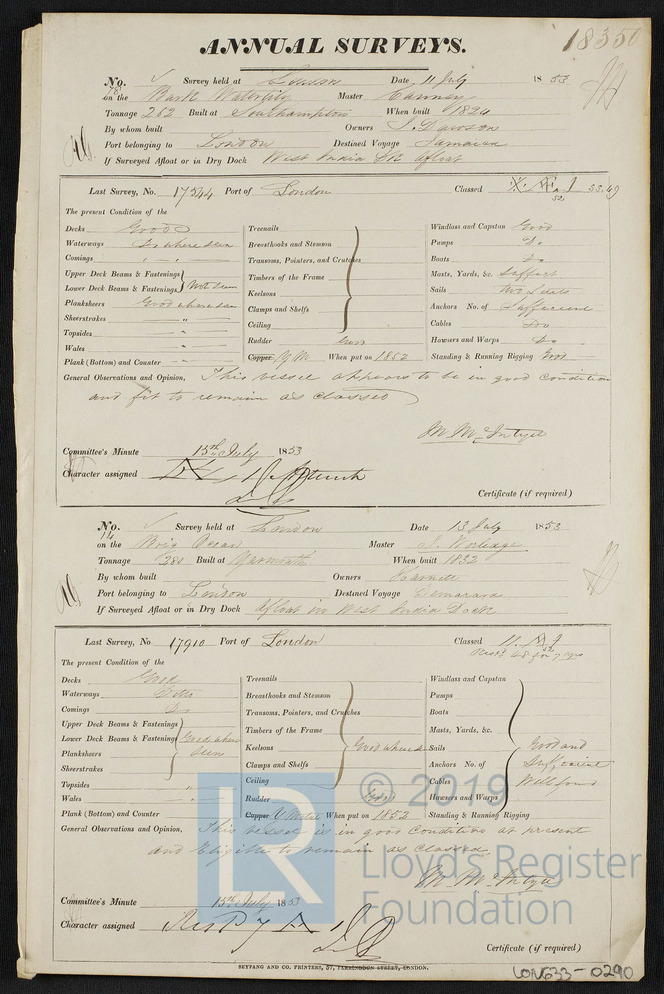 18350
ANNUAL SURVEYS.
No. Survey held at London Date 11 July 1853
on the Bark Waterlily Master
Tonnage 262 Built at Southampton When built 1824
By whom built Owners Dawson
Port belonging to London Destined Voyage Jamaica
If Surveyed Afloat or in Dry Dock West India Dk Afloat
Last Survey, No. 17544 Port of London Classed
The present Condition of the
Decks Good Treenails Windlass and Capstan Good
Waterways Do where seen Breasthooks and Stemson Pumps Do
Comings " Transoms, Pointers, and Crutches Boats Do
Upper Deck Beams & Fastenings Timbers of the Frame Masts, Yards, &c.
Lower Deck Beams & Fastenings Not seen Keelsons Sails
Planksheers Good where seen Clamps and Shelfs Anchors No. of Sufficient
Sheerstrakes " Ceiling Cables Do
Topsides " Rudder Good Hawsers and Warps Do
Wales " Copper Y M When put on 1852 Standing & Running Rigging Good
Plank (Bottom) and Counter "
General Observations and Opinion, This vessel appears to be in good condition
and fit to remain as classed
M McIntyre
Committee's Minute 15th July 1853
Character assigned
Certificate (if required)
No. Survey held at London Date 13 July 1853
on the Brig Ocean Master
Tonnage Built at Yarmouth When built 1832
By whom built Owners
Port belonging to London Destined Voyage Demarara
If Surveyed Afloat or in Dry Dock Afloat in West India Dock
Last Survey, No 17910 Port of London Classed
The present Condition of the
Decks Good Treenails Windlass and Capstan
Waterways Ditto Breasthooks and Stemson Pumps
Comings Do Transoms, Pointers, and Crutches Boats
Upper Deck Beams & Fastenings Timbers of the Frame Masts, Yards, &c.
Lower Deck Beams & Fastenings Good where Keelsons Good where Sails Good and
Planksheers seen Clamps and Shelfs Anchors No. of Sufficient
Sheerstrakes Ceiling Cables Well found
Topsides " Rudder Good Hawsers and Warps
Wales " Copper Y Metal When put on 1852 Standing & Running Rigging
Plank (Bottom) and Counter
General Observations and Opinion, This vessel is in good Condition at present
and Eligible to remain as Classed
M McIntyre
Committee's Minute 15th July 1853
Character assigned
Certificate (if required)
SEYFANG AND CO. PRINTERS, 57, FARRINGDON STREET, LONDON.
LON633-0290
LR
© 2019
Lloyd's Register
Foundation